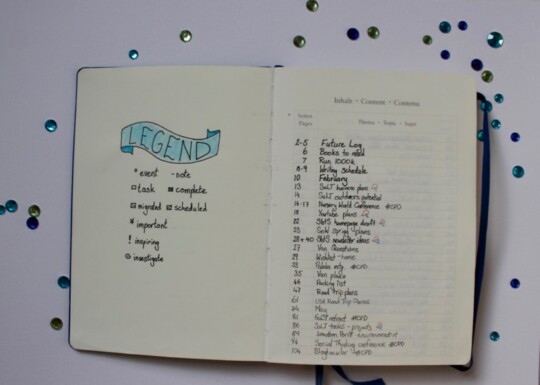 LEGEND
° event - note
task complete
migrated scheduled
* important
! inspiring
investigate
Inhalt • Content • Contenu
Seiten
Pages
Thema • Topic • Sujet
2-5 Future Log
6 Books to read
7 Run 1000k
8-9 Writing schedule
10 February
13 SaLT business plans
14 SaLT customers potential
16-17 Nursery World Conference #CPD
18 Youtube plans
22 homepage draft
25 SaLT spring plans
28+40 newsletter ideas
27 Van Questions
29 Wishlist - home
#CPD
35 Van plans
46 Packing list
47 Road Trip plans
61 USA Road Trip Plans
64 May
81 retreat #CPD
86 SaLT tasks - projects
94 Social Thinking conference #CPD
104